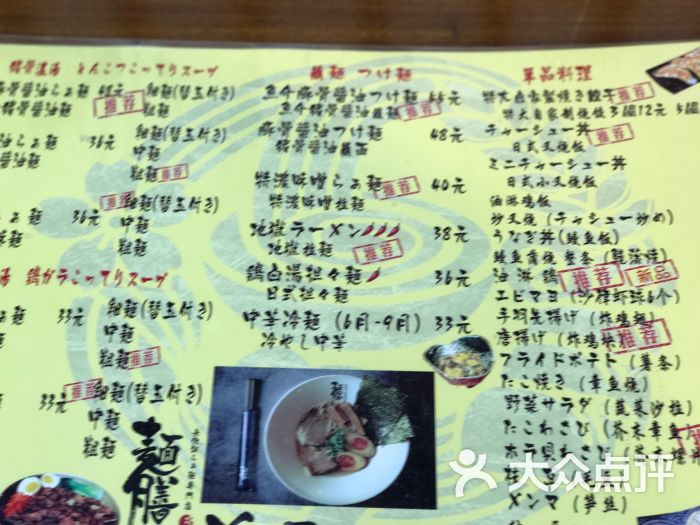 豬骨濃湯 とんこつこってりスープ
豚骨醤油らぁ麺 48元 細麺(替玉付き)
豬骨醤油麺 推荐 粗麺
油らぁ麺 36元 細麺(替玉付き)
醤油麺 中麺
粗麺 推荐
らぁ麺 36元 推荐 細麺(替玉付き)
中麺
粗麺
湯 鶏ガラこってりスープ
33元 細麺(替玉付き)
中麺
粗麺 推荐
33元 推荐 細麺(替玉付き)
中麺
粗麺
麺膳
蘸麺 つけ麺
魚介豬骨醤油つけ麺 44元
魚介豬骨醤油蘸麺 推荐
豚骨醤油つけ麺 48元
豬骨醤油蘸面
特濃味噌らぁ麺 40元
特濃味噌拉麺 推荐
地獄ラーメン 38元
地獄拉麺 推荐
鶏白湯担々麺 36元
日式担々麺
中華冷麺 (6月-9月) 33元
冷やし中華
単品料理
特大自家製焼き餃子 推荐
特大自家制煎餃 3個12元 5個
チャーシュー丼 推荐
日式叉焼飯
ミニチャーシュー丼
日式小叉焼飯
油淋鶏飯
炒叉焼 (チャーシュー炒め)
うなぎ丼 (鰻魚飯)
油淋鶏 推荐 新品
エビマヨ (沙律虾球6个)
手羽先揚げ (炸鸡翅)
唐揚げ (炸鸡块) 推荐
フライドポテト (薯条)
たこ焼き (章魚焼)
野菜サラダ (蔬菜沙拉)
たこわさび (芥末章魚)
ホラ貝わさび
メンマ (笋丝)
大众点评